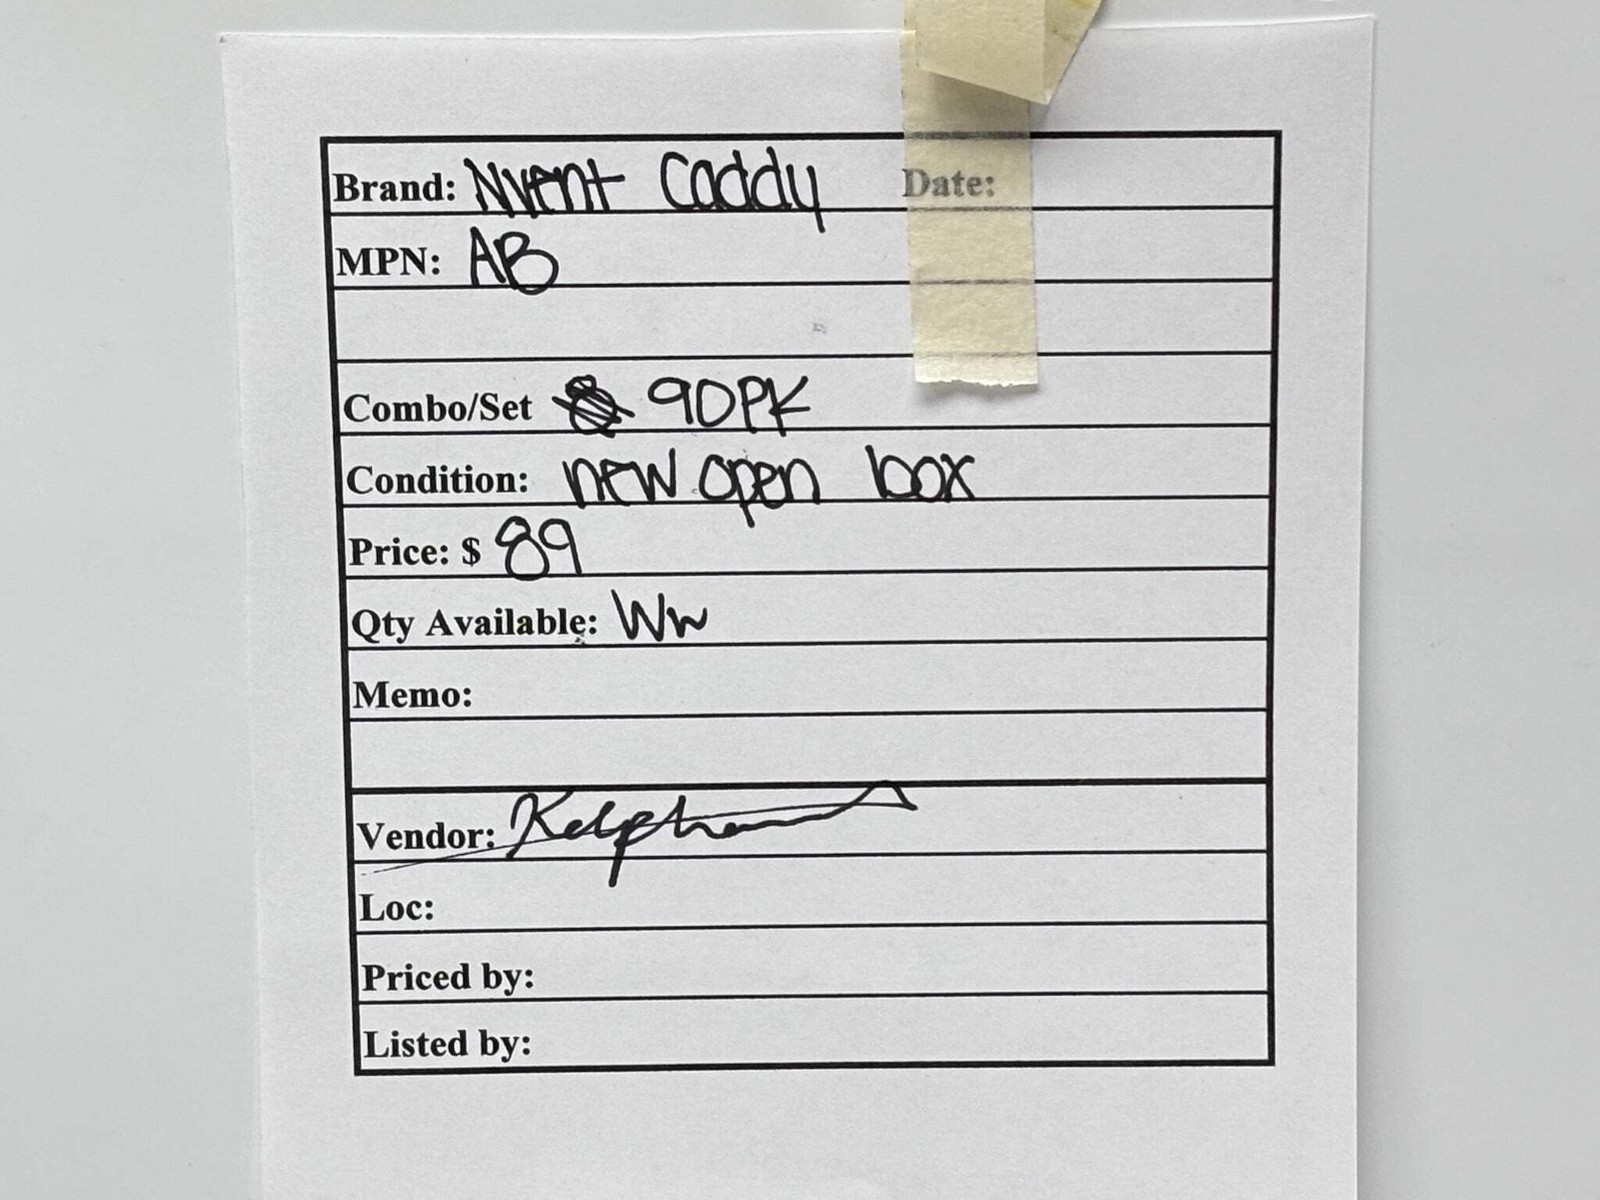 Brand: Nvent Caddy Date:
MPN: AB
Combo/Set 90PK
Condition: new open box
Price: $ 89
Qty Available: Ww
Memo:
Vendor:
Loc:
Priced by:
Listed by: